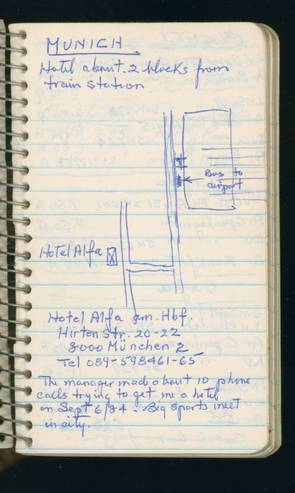 MUNICH
Hotel about 2 blocks from
train station
Bus to
airport
Hotel Alfa
Hotel Alfa am. Hbf.
Hirten Str. 20-22
8000 München 2
Tel 089-598461-65
The manager made about 10 phone
calls trying to get me a hotel
on Sept 6/84. Big sports meet
in city.